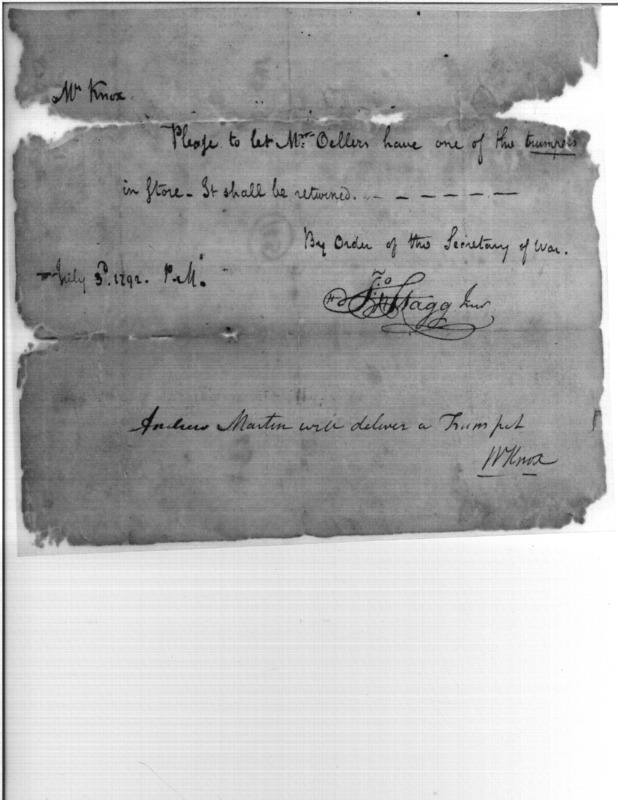 Mr Knox
Please to let Mr. Oellers have one of the trumpets
in Store - It shall be returned. - - - - - -
By Order of the Secretary of War.
July 3d. 1792. P.M.
Jno Stagg Junr
Andrew Martin will deliver a Trumpet
W Knox